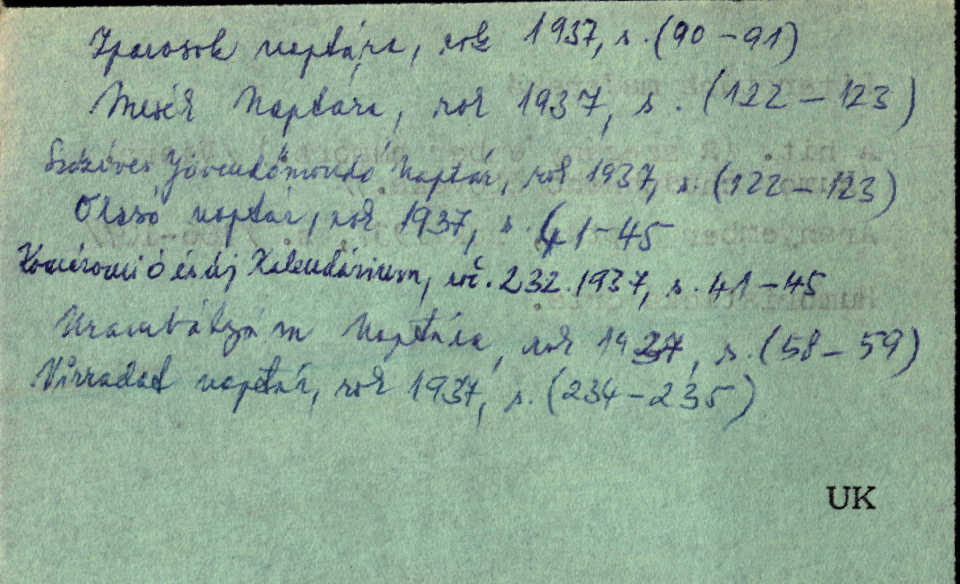 Iparosok naptára, rok 1937, s. (90-91)
Mesék Naptára, rok 1937, s. (122-123)
Százéves Jövendőmondó Naptár, rok 1937, s. (122-123)
Olcsó naptár, rok 1937, s. 41-45
Komáromi Ó és új Kalendárium, roč. 232. 1937, s. 41-45
Urambátyám Naptára, rok 1937, s. (58-59)
Virradat naptár, rok 1937, s. (234-235)
UK